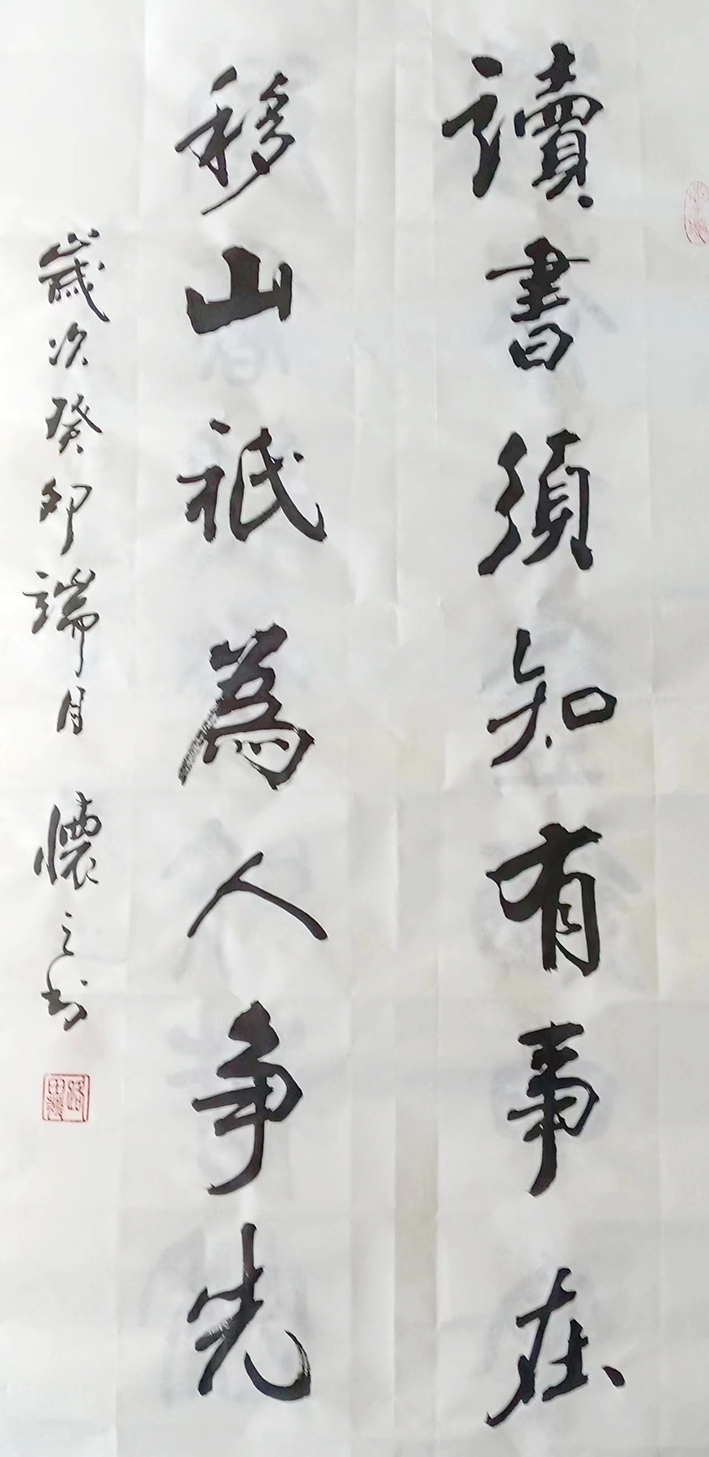 讀書須知有事在
移山祇為人爭先
歲次癸卯端月 懷之書